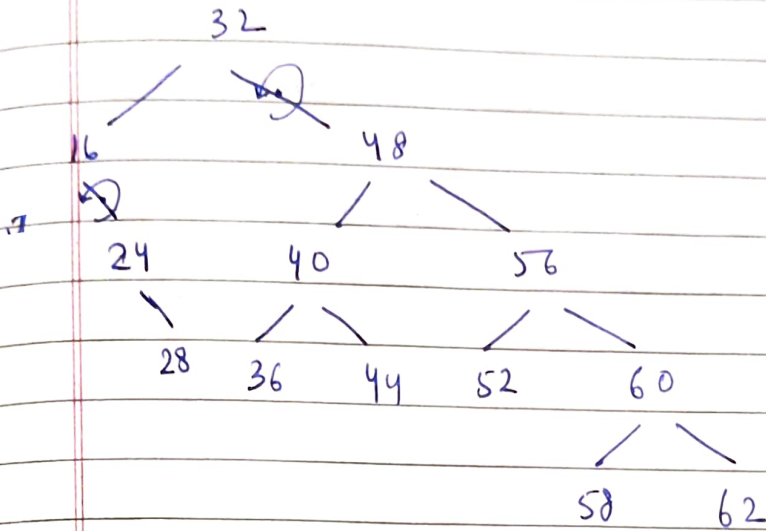 32
16 48
24 40 56
28 36 44 52 60
58 62